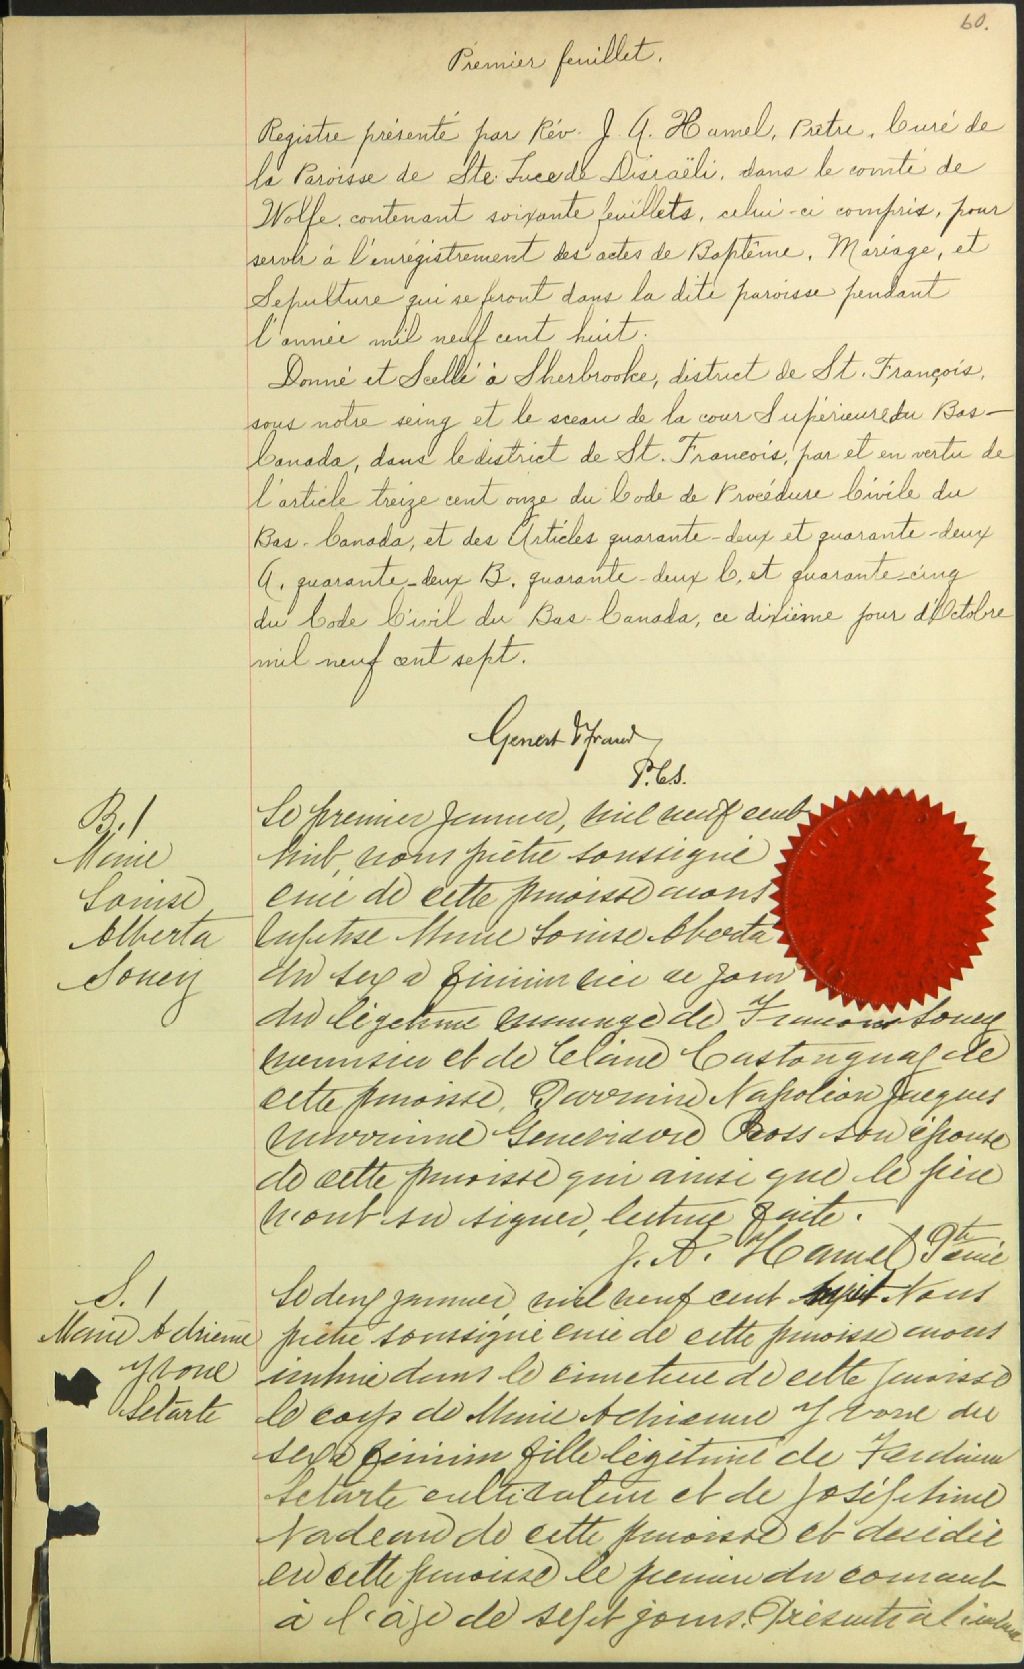 60.
Premier feuillet.
Registre présenté par Rév. J. A. Hamel, Prêtre, Curé de
la Paroisse de Ste. Luce de Disraëli, dans le comté de
Wolfe, contenant soixante feuillets, celui-ci compris, pour
servir à l'enrégistrement des actes de Baptême, Mariage, et
Sepulture qui se feront dans la dite paroisse pendant
l'année mil neuf cent huit.
Donné et Scellé à Sherbrooke, district de St. François,
sous notre seing et le sceau de la cour Supérieure du Bas-
Canada, dans le district de St. Francois, par et en vertu de
l'article treize cent onze du Code de Procédure Civile du
Bas-Canada, et des Articles quarante-deux et quarante-deux
A, quarante-deux B, quarante-deux C, et quarante-cinq
du Code Civil du Bas-Canada, ce dixième jour d'Octobre
mil neuf cent sept.
P.C.S.
B. 1
Marie
Louise
Alberta
Soucy
Le premier Janvier, mil neuf cent
huit, nous prêtre soussigné
curé de cette paroisse avons
baptisé Marie Louise Alberta
du sexe féminin née ce jour
du légitime mariage de Francois Soucy
menusier et de Celina Castonguay de
cette paroisse. Parrain Napoléon Jacques
marraine Genevieve Ross son épouse
de cette paroisse qui ainsi que le père
n'ont su signer, lecture faite.
J. A. Hamel Ptr curé
S. 1
Marie Adrienne
Yvone
Letarte
Le deux janvier, mil neuf cent huit Nous
prêtre soussigné curé de cette paroisse avons
inhumé dans le cimetiere de cette paroisse
le corps de Marie Adrienne Yvone du
sexe féminin fille légitime de Ferdinand
Letarte cultivateur et de Joséphine
Nadeau de cette paroisse et décédée
en cette paroisse le premier du courant
à l'âge de sept jours. Présents à l'inhum